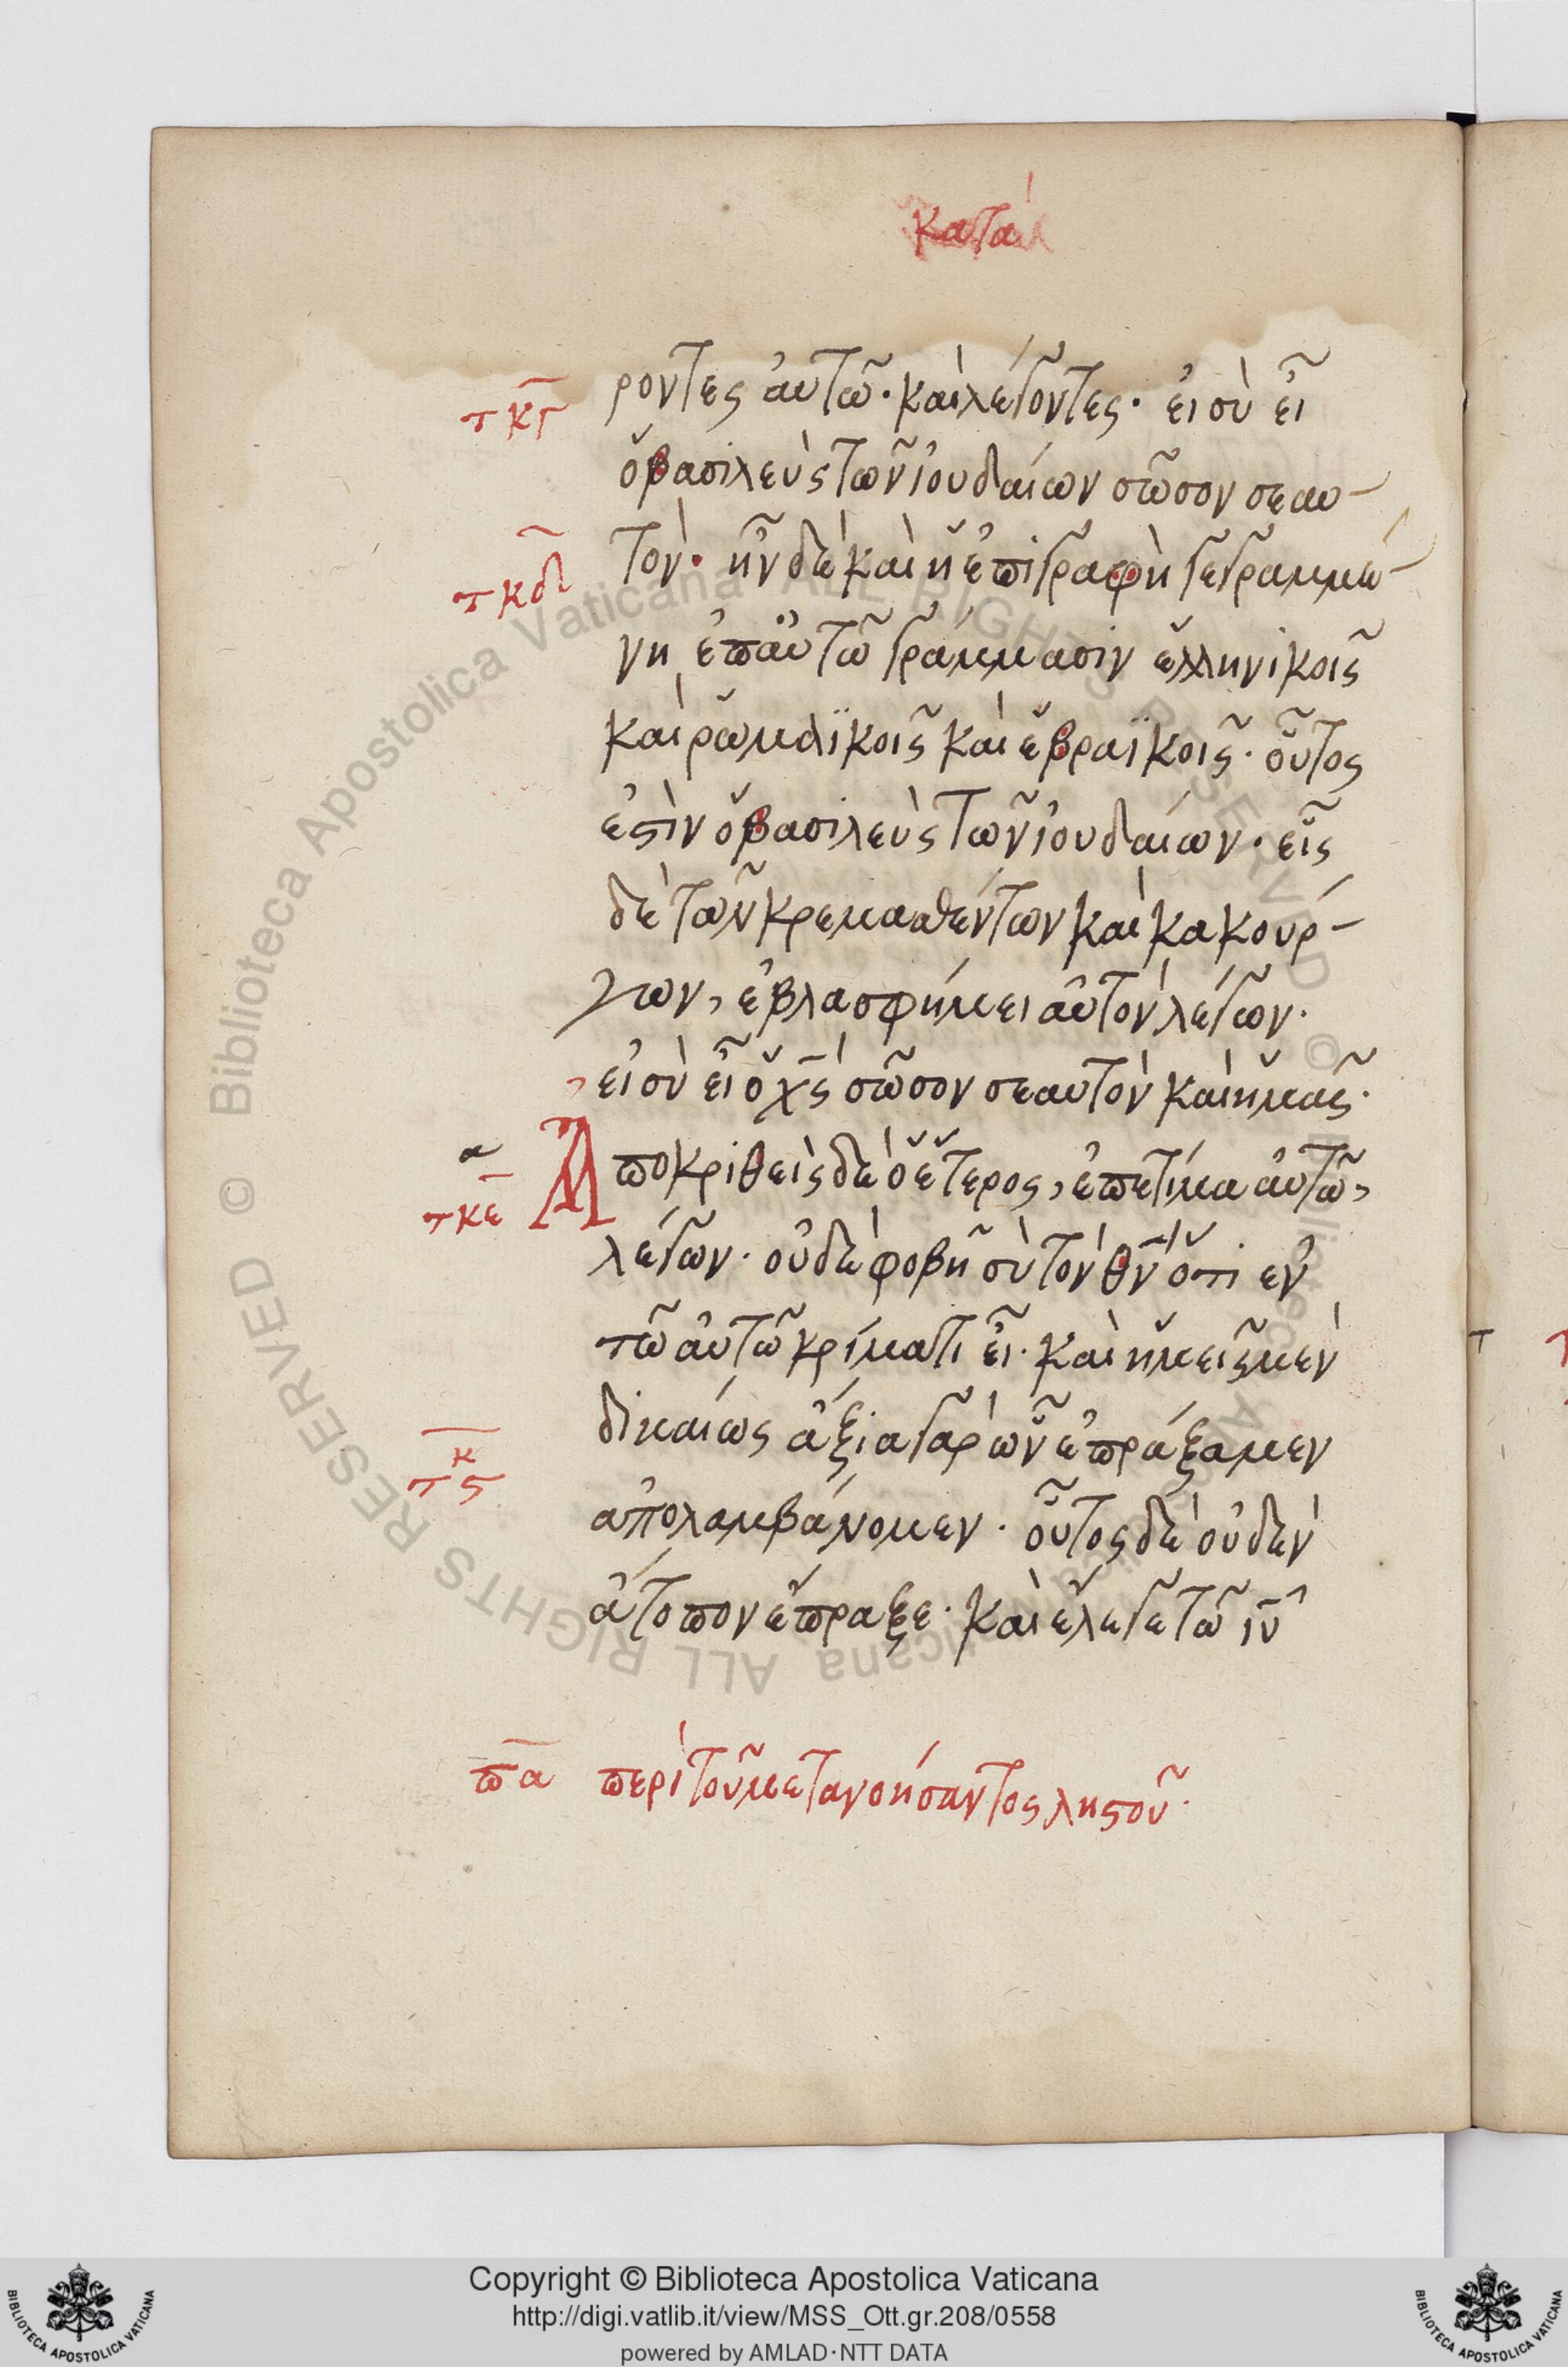 κατὰ
τκγ
ροντες ἀυτῶ· καὶ λέγοντες· ἐι σὺ εἶ
ὁ βασιλεὺς τῶν ἰουδαίων σῶσον σεαυ-
τκδ
τόν· ἦν δὲ καὶ ἡ ἐπιγραφὴ γεγραμμέ-
νη ἐπ' ἀυτῶ γράμμασιν ἑλληνικοῖς
καὶ ῥωμαϊκοῖς καὶ ἑβραϊκοῖς· οὗτος
ἐστὶν ὁ βασιλεὺς τῶν ἰουδαίων· εἷς
δὲ τῶν κρεμασθέντων καὶ κακούρ-
γων, ἐβλασφήμει ἀυτὸν λέγων·
εἰ σὺ εἶ ὁ χς σῶσον σεαυτὸν καὶ ἡμᾶς·
α
τκε
Ἀποκριθεὶς δὲ ὁ ἕτερος, ἐπετίμα ἀυτῶ,
λέγων· οὐδὲ φοβῆ σὺ τὸν θν ὅτι ἐν
τῶ ἀυτῶ κρίματι εἶ· καὶ ἡμεῖς μὲν
δικαίως ἄξια γὰρ ὧν ἐπράξαμεν
τκϛ
ἀπολαμβάνομεν· οὗτος δὲ οὐδὲν
ἄτοπον ἔπραξε· καὶ ἔλεγε τῶ ιυ
πα περὶ τοῦ μετανοήσαντος ληστοῦ·
Biblioteca Apostolica Vaticana ALL RIGHTS RESERVED ©
Biblioteca Apostolica Vaticana ALL RIGHTS RESERVED ©
Copyright © Biblioteca Apostolica Vaticana
http://digi.vatlib.it/view/MSS_Ott.gr.208/0558
powered by AMLAD·NTT DATA
BIBLIOTECA APOSTOLICA VATICANA
BIBLIOTECA APOSTOLICA VATICANA